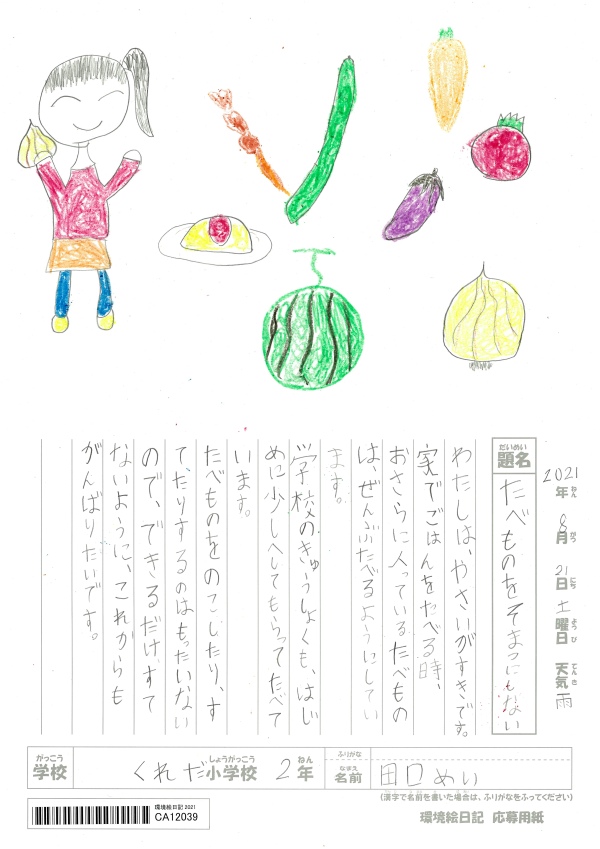 2021年ねん 8月がつ 21日にち 土曜日ようび 天気てんき 雨
題名だいめい たべものをそまつにしない
わたしは、やさいがすきです。
家でごはんをたべる時、
おさらに入っているたべもの
は、ぜんぶたべるようにしてい
ます。
学校のきゅうしょくも、はじ
めに少しへしてもらってたべて
います。
たべものをのこしたり、す
てたりするのはもったいない
ので、できるだけ、すて
ないように、これからも
がんばりたいです。
がっこう 学校 くれだ小学校しょうがっこう 2年ねん
ふりがな
なまえ 名前 田口めい
(漢字で名前を書いた場合は、ふりがなをふってください)
環境絵日記 2021
CA12039
環境絵日記 応募用紙